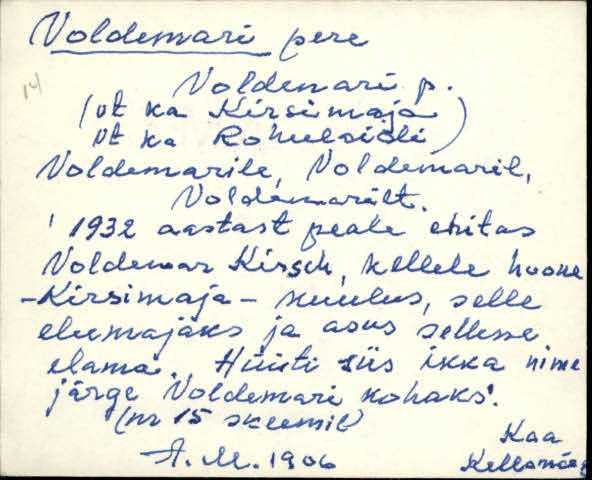 Voldemari pere
14
Voldemari p.
(vt ka Kirsimaja
vt ka Rohuleidi)
Voldemarile, Voldemaril,
Voldemarilt.
1932 aastast peale ehitas
Voldemar Kirsch, kellele hoone
-Kirsimaja- kuulus, selle
elumajaks ja asus sellesse
elama. Hüüti siis ikka nime
järge Voldemari kohaks.
(nr 15 skeemil)
A. M. 1906
Kaa